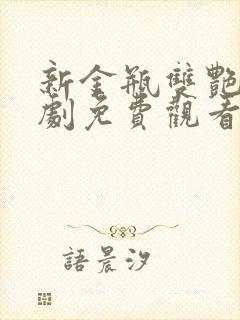 新金瓶雙艷
劇免費觀看
語晨汐